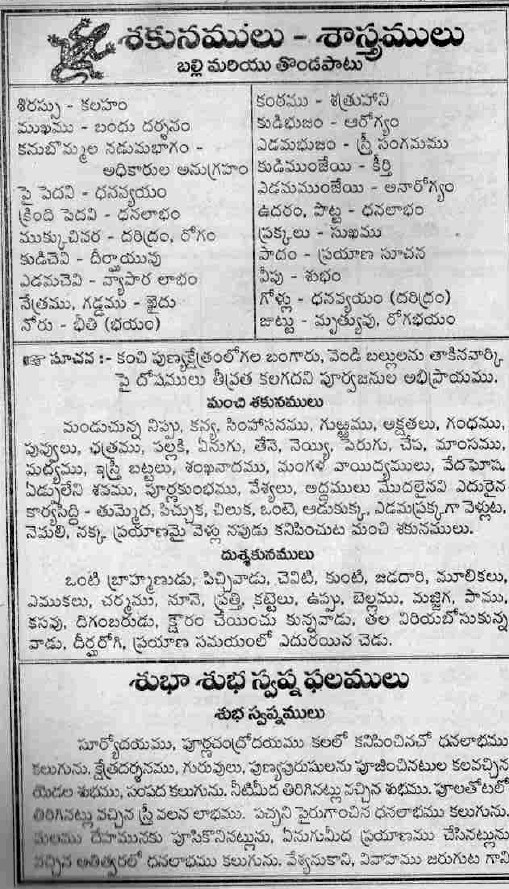 శకునములు - శాస్త్రములు
బల్లి మరియు తొండపాటు
శిరస్సు - కలహం
ముఖము - బందు దర్శనం
కనుబొమ్మల నడుమభాగం -
అధికారుల అనుగ్రహం
పై పెదవి - ధనవ్యయం
క్రింది పెదవి - ధనలాభం
ముక్కుచివర - దరిద్రం, రోగం
కుడిచెవి - దీర్ఘాయువు
ఎడమచెవి - వ్యాపార లాభం
నేత్రము, గడ్డము - ఖైదు
నోరు - భీతి (భయం)
కంఠము - శత్రుహాని
కుడిభుజం - ఆరోగ్యం
ఎడమభుజం - స్త్రీ సంగమము
కుడిముంజేయి - కీర్తి
ఎడమముంజేయి - అనారోగ్యం
ఉదరం, పొట్ట - ధనలాభం
ప్రక్కలు - సుఖము
పాదం - ప్రయాణ సూచన
వీపు - శుభం
గోళ్లు - ధనవ్యయం (దరిద్రం)
జుట్టు - మృత్యువు, రోగభయం
సూచన :- కంచి పుణ్యక్షేత్రంలోగల బంగారు, వెండి బల్లులను తాకినవార్కి
పై దోషములు తీవ్రత కలగదని పూర్వజనుల అభిప్రాయము.
మంచి శకునములు
మండుచున్న నిప్పు, కన్య, సింహాసనము, గుఱ్ఱము, అక్షతలు, గంధము,
పువ్వులు, ఛత్రము, పల్లకి, ఏనుగు, తేనె, నెయ్యి, పెరుగు, చేప, మాంసము,
మద్యము, ఇస్త్రీ బట్టలు, శంఖనాదము, మంగళ వాయిద్యములు, వేదఘోష,
ఏడ్పులేని శవము, పూర్ణకుంభము, వేశ్యలు, అద్దములు మొదలైనవి ఎదురైన
కార్యసిద్ధి - తుమ్మెద, పిచ్చుక, చిలుక, ఒంటె, ఆడుకుక్క, ఎడమప్రక్కగా వెళ్లుట,
నెమలి, నక్క ప్రయాణమై వెళ్లు నపుడు కనిపించుట మంచి శకునములు.
దుశ్శకునములు
ఒంటి బ్రాహ్మణుడు, పిచ్చివాడు, చెవిటి, కుంటి, జడదారి, మూలికలు,
ఎముకలు, చర్మము, నూనె, ప్రత్తి, కట్టెలు, ఉప్పు, బెల్లము, మజ్జిగ, పాము,
కసవు, దిగంబరుడు, క్షౌరం చేయించు కున్నవాడు, తల విరియబోసుకున్న
వాడు, దీర్ఘరోగి, ప్రయాణ సమయంలో ఎదురయిన చెడు.
శుభా శుభ స్వప్న ఫలములు
శుభ స్వప్నములు
సూర్యోదయము, పూర్ణచంద్రోదయము కలలో కనిపించినచో ధనలాభము
కలుగును. క్షేత్రదర్శనము, గురువులు, పుణ్యపురుషులను పూజించినటుల కలవచ్చిన
యెడల శుభము, సంపద కలుగును. నీటిమీద తిరిగినట్లు వచ్చిన శుభము. పూలతోటలో
తిరిగినట్లు వచ్చిన స్త్రీ వలన లాభము. పచ్చని పైరుగాంచిన ధనలాభము కలుగును.
మలము దేహమునకు పూసికొనినట్లును, ఏనుగుమీద ప్రయాణము చేసినట్లును
వచ్చిన అతిత్వరలో ధనలాభము కలుగును. వేశ్యనుకాని, వివాహము జరుగుట గాని